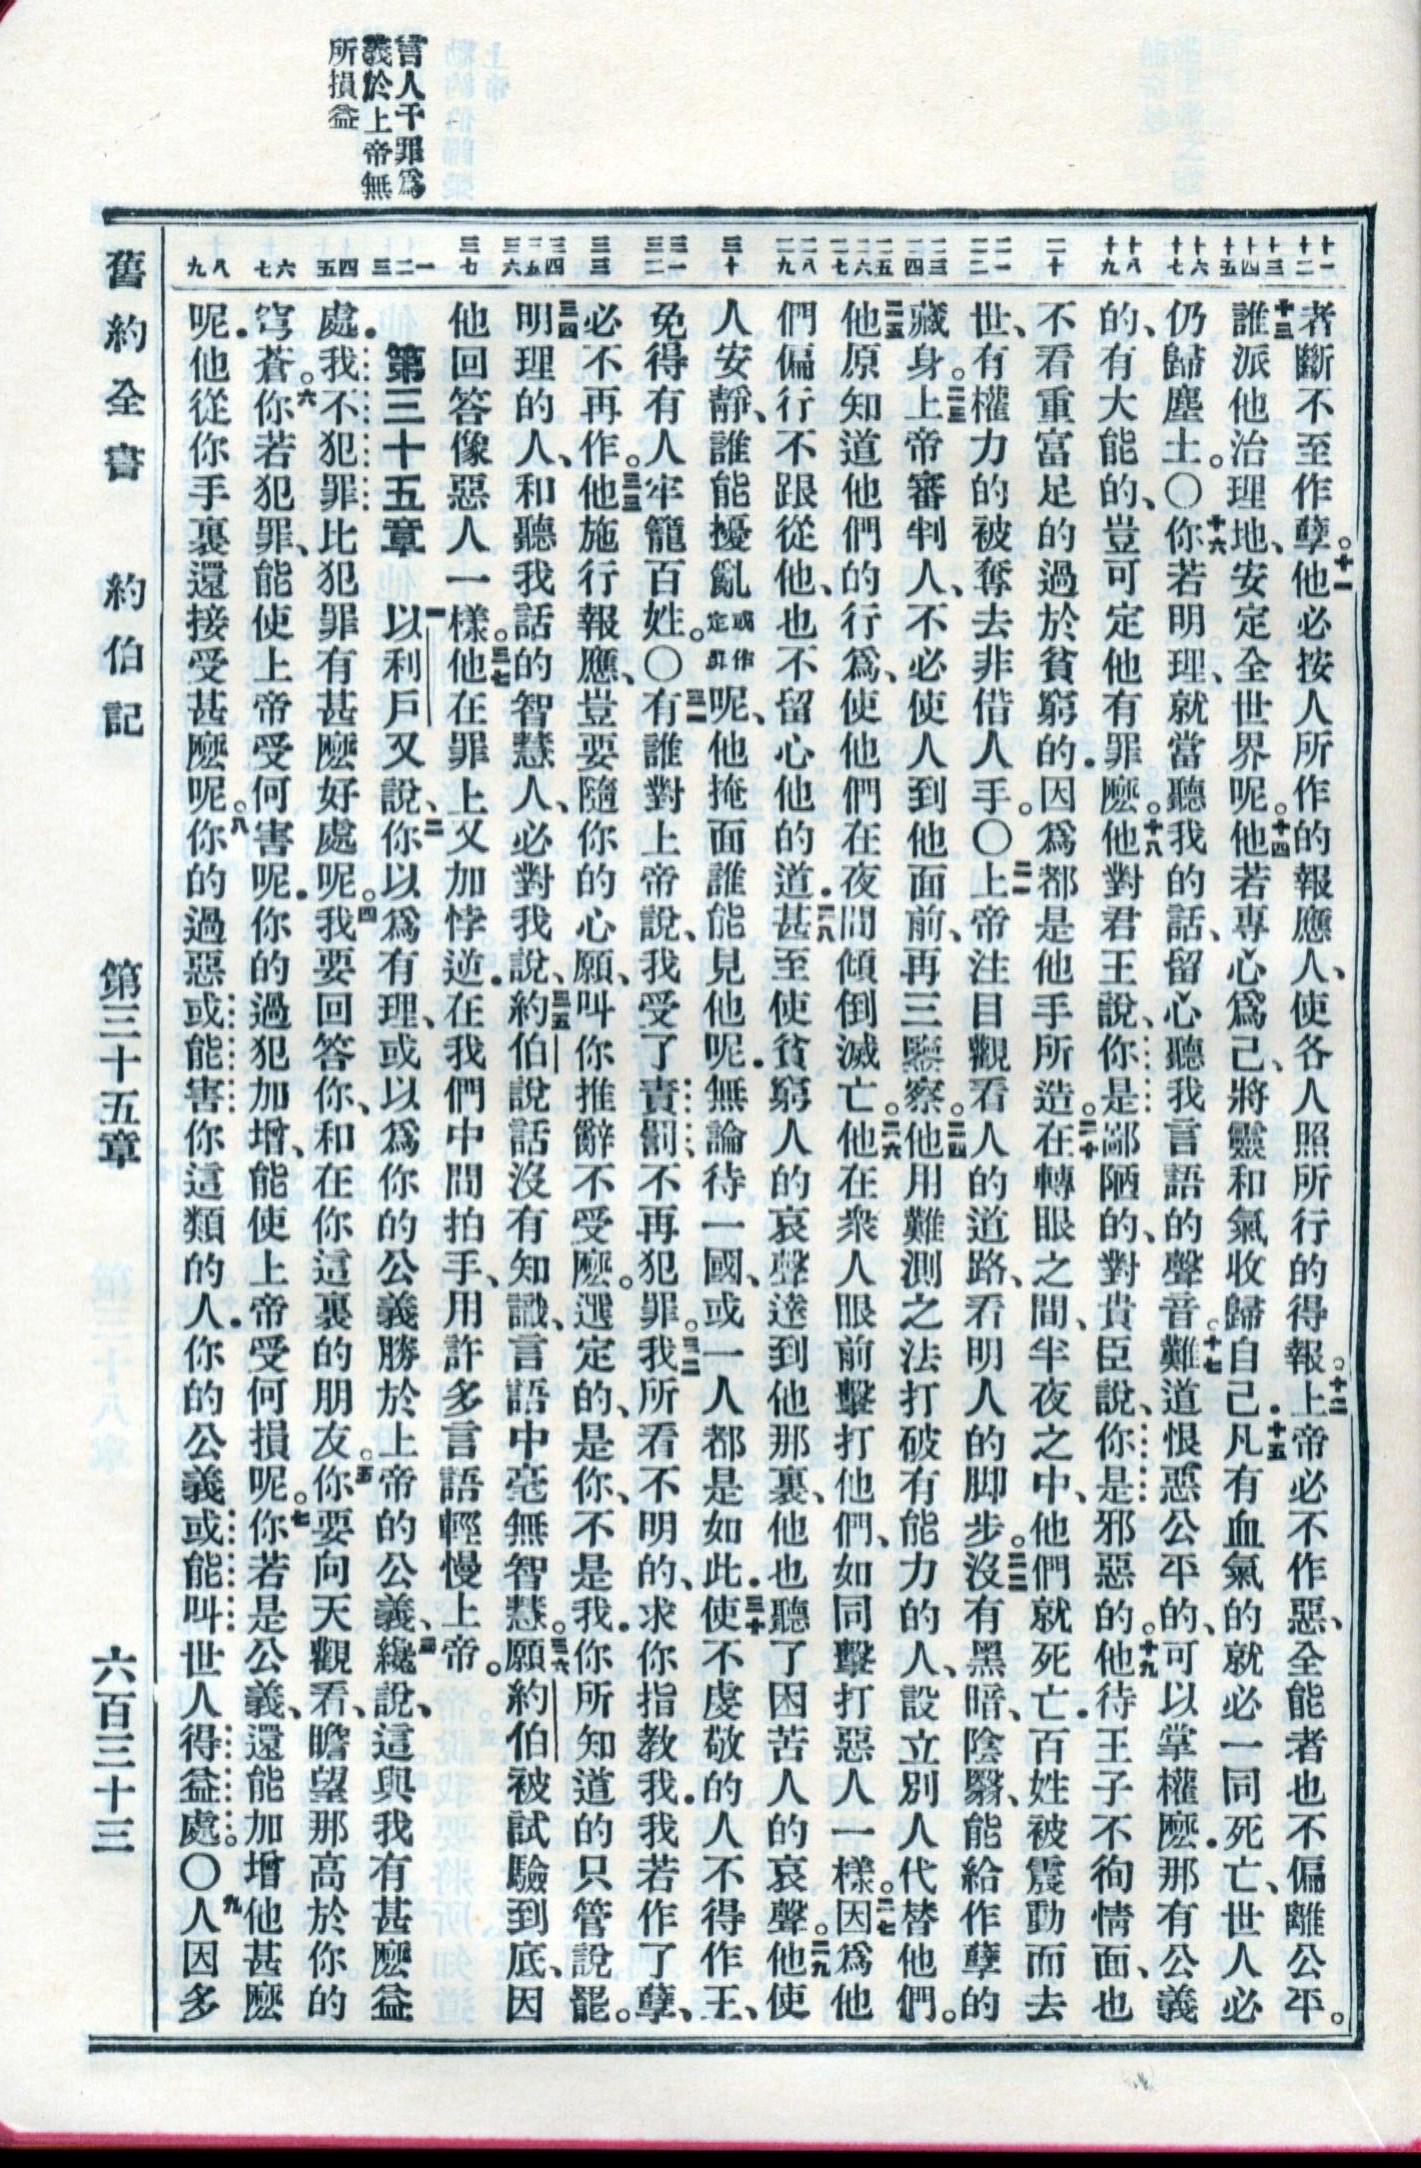 言人干罪爲
義於上帝無
所損益
十一
十二
十三
十四
十五
十六
十七
十八
十九
二十
二一
二二
二三
二四
二五
二六
二七
二八
二九
三十
三一
三二
三三
三四
三五
三六
三七
一
二
三
四
五
六
七
八
九
者斷不至作孽。十一他必按人所作的報應人、使各人照所行的得報。十二上帝必不作惡、全能者也不偏離公平。
十三誰派他治理地、安定全世界呢。十四他若專心爲己、將靈和氣收歸自己．十五凡有血氣的就必一同死亡、世人必
仍歸塵土。〇十六你若明理、就當聽我的話、留心聽我言語的聲音。十七難道恨惡公平的、可以掌權麽．那有公義
的、有大能的、豈可定他有罪麽。十八他對君王說、你是鄙陋的、對貴臣說、你是邪惡的。十九他待王子不徇情面、也
不看重富足的過於貧窮的．因爲都是他手所造。二十在轉眼之間、半夜之中、他們就死亡．百姓被震動而去
世、有權力的被奪去非借人手。〇二一上帝注目觀看人的道路、看明人的脚步。二二沒有黑暗、陰翳、能給作孽的
藏身。二三上帝審判人、不必使人到他面前、再三鑒察。二四他用難測之法打破有能力的人、設立別人代替他們。
二五他原知道他們的行爲、使他們在夜間傾倒滅亡。二六他在衆人眼前擊打他們、如同擊打惡人一樣。二七因爲他
們偏行不跟從他、也不留心他的道．二八甚至使貧窮人的哀聲達到他那裏、他也聽了困苦人的哀聲。二九他使
人安靜、誰能擾亂或作定罪呢、他掩面誰能見他呢．無論待一國、或一人都是如此．三十使不虔敬的人不得作王、
免得有人牢籠百姓。〇三一有誰對上帝說、我受了責罰、不再犯罪。三二我所看不明的、求你指教我．我若作了孽、
必不再作。三三他施行報應、豈要隨你的心願、叫你推辭不受麽。選定的、是你、不是我．你所知道的只管說罷。
三四明理的人、和聽我話的智慧人、必對我說、三五約伯說話沒有知識、言語中毫無智慧。三六願約伯被試驗到底、因
他回答像惡人一樣。三七他在罪上又加悖逆．在我們中間拍手、用許多言語輕慢上帝。
第三十五章　一以利戶又說、二你以爲有理、或以爲你的公義勝於上帝的公義、三纔說、這與我有甚麽益
處．我不犯罪比犯罪有甚麽好處呢。四我要回答你、和在你這裏的朋友。五你要向天觀看、瞻望那高於你的
穹蒼。六你若犯罪、能使上帝受何害呢．你的過犯加增、能使上帝受何損呢。七你若是公義、還能加增他甚麽
呢．他從你手裏還接受甚麽呢。八你的過惡或能害你這類的人．你的公義或能叫世人得益處。〇九人因多
舊約全書　約伯記　第三十五章　六百三十三